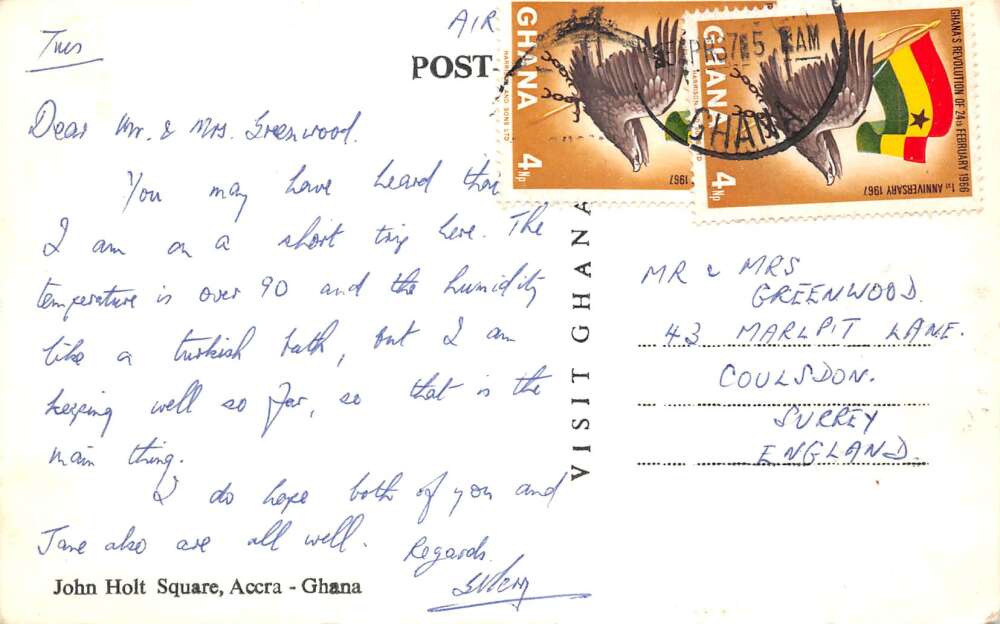 Tues
AIR
POST
Dear Mr. & Mrs. Greenwood.
You may have heard
I am on a short trip here. The
temperature is over 90 and the humidity
like a turkish bath, but I am
keeping well so far, so that is the
main thing.
I do hope both of you and
Jane also are all well. Regards.
John Holt Square, Accra - Ghana
VISIT GHANA
GHANA
HARRISON AND SONS LTD
4Np
1967
GHANA
HARRISON
4Np
GHANA'S REVOLUTION OF 24TH FEBRUARY 1966
1ST ANNIVERSARY 1967
AM
GHANA
MR & MRS
GREENWOOD.
43 MARLPIT LANE.
COULSDON.
SURREY
ENGLAND.